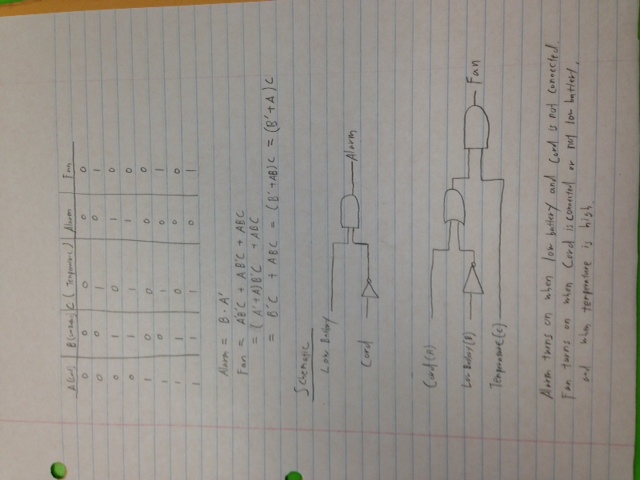 A(Cord) C (Temperature) Alarm Fan
0 0 0 0 0
0 0 1 0 1
0 1 0 1 0
0 1 1 1 0
1 0 0 0 0
1 0 1 0 1
1 1 0 0 0
1 1 1 0 1
Alarm = B · A'
Fan = A'B'C + AB'C + ABC
= (A'+A)B'C + ABC
= B'C + ABC = (B'+AB)C = (B'+A)C
Schematic
Low Battery
Cord
Alarm
Cord(A)
Low Battery(B)
Temperature(C)
Fan
Alarm turns on when low battery and Cord is not connected
Fan turns on when Cord is connected or not low battery,
and when temperature is high.